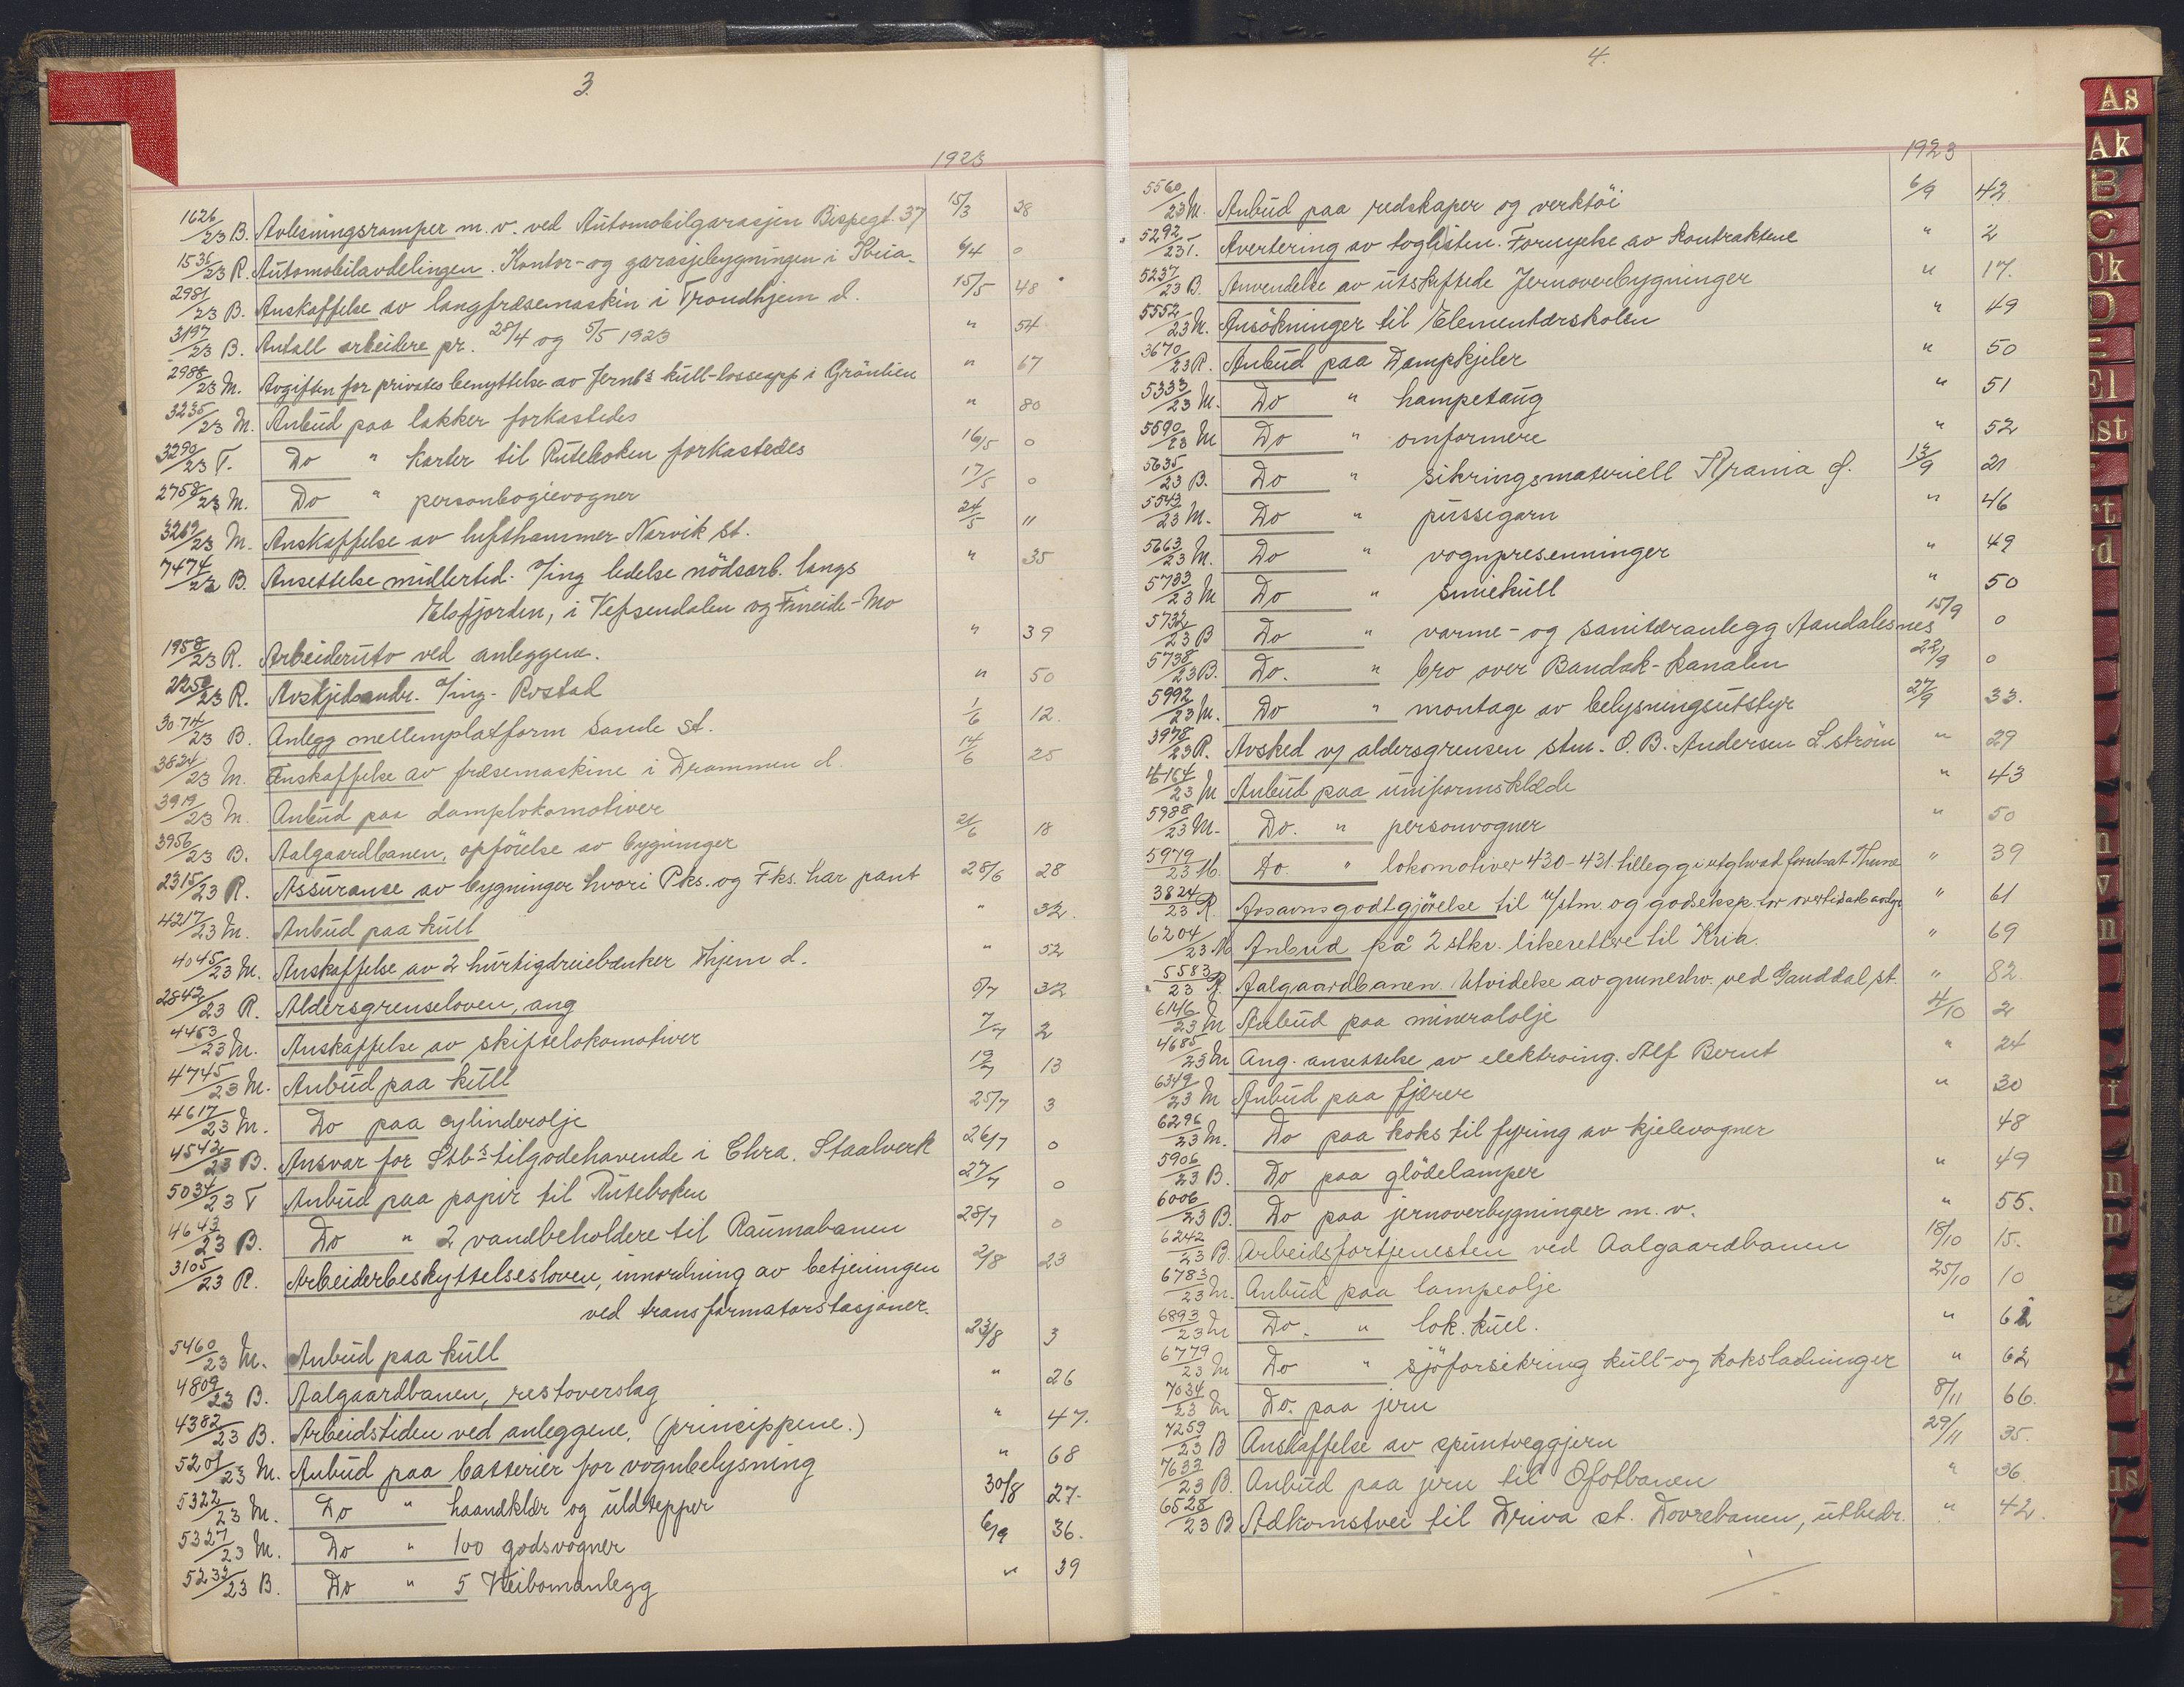 3.
1923
1626/23 B. Avlesningsramper m. v. ved Automobilgarasjen Bispegt. 37 15/3 28
1535/23 R. Automobilavdelingen. Kontor- og garasjebygningen i Kria. 6/4 0
2981/23 B. Anskaffelse av langfræsemaskin i Trondhjem d. 15/5 48
3197/23 B. Antall arbeidere pr. 28/4 og 5/5 1923 " 54
2988/23 M. Avgiften for privates benyttelse av Jernbs kull-losseapp i Grönlien " 67
3235/23 M. Anbud paa lakker forkastedes " 80
3290/23 T. Do " karter til Ruteboken forkastedes 16/5 0
2758/23 M. Do " personbogievogner 17/5 0
3269/23 M. Anskaffelse av lufthammer Narvik st. 24/5 11
7474/22 B. Ansettelse midlertid. o/ing ledelse nödsarb. langs " 35
Elsfjorden, i Vefsendalen og Finneide-Mo
1958/23 R. Arbeideruto ved anleggene. " 39
2250/23 R. Avskjedsandr. o/ing. Rostad " 50
3074/23 B. Anlegg mellemplatform Sande st. 1/6 12.
3824/23 M. Anskaffelse av fræsemaskine i Drammen d. 14/6 25
3919/23 M. Anbud paa damplokomotiver
3956/23 B. Aalgaardbanen, opförelse av bygninger 21/6 18
2315/23 R. Assuranse av bygninger hvori Pks. og Fks. har pant 28/6 28
4217/23 M. Anbud paa kull " 32.
4045/23 M. Anskaffelse av 2 hurtigdreiebænker Thjem d. " 52
2842/23 R. Aldersgrenseloven, ang 5/7 32
4453/23 M. Anskaffelse av skiftelokomotiver 7/7 2
4745/23 M. Anbud paa kull 19/7 13
4617/23 M. Do paa cylinderolje 25/7 3
4542/23 B. Ansvar for Stbs tilgodehavende i Chra. Staalverk 26/7 0
5034/23 T Anbud paa papir til Ruteboken 27/7 0
4643/23 B. Do " 2 vandbeholdere til Raumabanen 28/7 0
3105/23 R. Arbeiderbeskyttelsesloven, innordning av betjeningen 2/8 23
ved transformatorstasjoner.
5460/23 M. Anbud paa kull 23/8 3
4809/23 B. Aalgaardbanen, restoverslag " 26
4382/23 B. Arbeidstiden ved anleggene. (princippene.) " 47.
5201/23 M. Anbud paa batterier for vognbelysning " 68
5322/23 M. Do " haandklær og uldtepper 30/8 27.
5327/23 M. Do " 100 godsvogner 6/9 36.
5232/23 B. Do " 5 Veibomanlegg " 39
4.
1923
5560/23 M. Anbud paa redskaper og verktöi 6/9 42
5292/23 T. Avertering av toglisten. Fornyelse av kontraktene " 2
5237/23 B. Anvendelse av utskiftede Jernoverbygninger " 17.
5552/23 M. Ansökninger til Elementærskolen " 49
3670/23 R. Anbud paa Dampkjeler " 50
5333/23 M. Do " hampetaug " 51
5590/23 M Do " omformere " 52
5635/23 B. Do " sikringsmateriell Krania d. 13/9 21
5543/23 M. Do " pussegarn " 46
5663/23 M. Do " vognpresenninger " 49
5733/23 M Do " smiekull " 50
5732/23 B Do " varme- og sanitæranlegg Aandalesnes 15/9 0
5738/23 B. Do. " bro over Bandak-kanalen 22/9 0
5992/23 M. Do " montage av belysningsutstyr 27/9 33.
3978/23 R. Avsked v/ aldersgrensen stm. O. B. Andersen L.ström " 29
4164/23 M Anbud paa uniformsklæde " 43
5988/23 M. Do. " personvogner " 50
5979/23 M. Do. " lokomotiver 430-431. tillegg i utglvad forutsat Thune " 39
3824/23 R. Avsavnsgodtgjörelse til u/stm. og godseksp. for overtidsarb " 61
6204/23 M Anbud på 2 stkr. likerettere til Kria. " 69
5583/23 R. Aalgaardbanen. Utvidelse av gruneshv. ved Ganddal st. " 82
6146/23 M Anbud paa mineralolje 4/10 2
4685/23 M Ang. ansettelse av elektroing. Alf Bernt " 24
6349/23 M Anbud paa fjærer " 30
6296/23 M. Do paa koks til fyring av kjelevogner 48
5906/23 B. Do paa glödelamper " 49
6006/23 B. Do paa jernoverbygninger m. v. " 55.
6242/23 B. Arbeidsfortjenesten ved Aalgaardbanen 18/10 15.
6783/23 M. Anbud paa lampeolje 25/10 10
6893/23 M Do. " lok. kull. " 61
6779/23 M Do " sjöforsikring kull- og koksladninger " 62
7034/23 M Do. paa jern 8/11 66.
7259/23 B Anskaffelse av spuntveggjern 29/11 35.
7633/23 B. Anbud paa jern til Ofotbanen " 36.
6528/23 B. Adkomstvei til Driva st. Dovrebanen, utbedr. " 42.
As
Ak
B
C
Ck
D
El